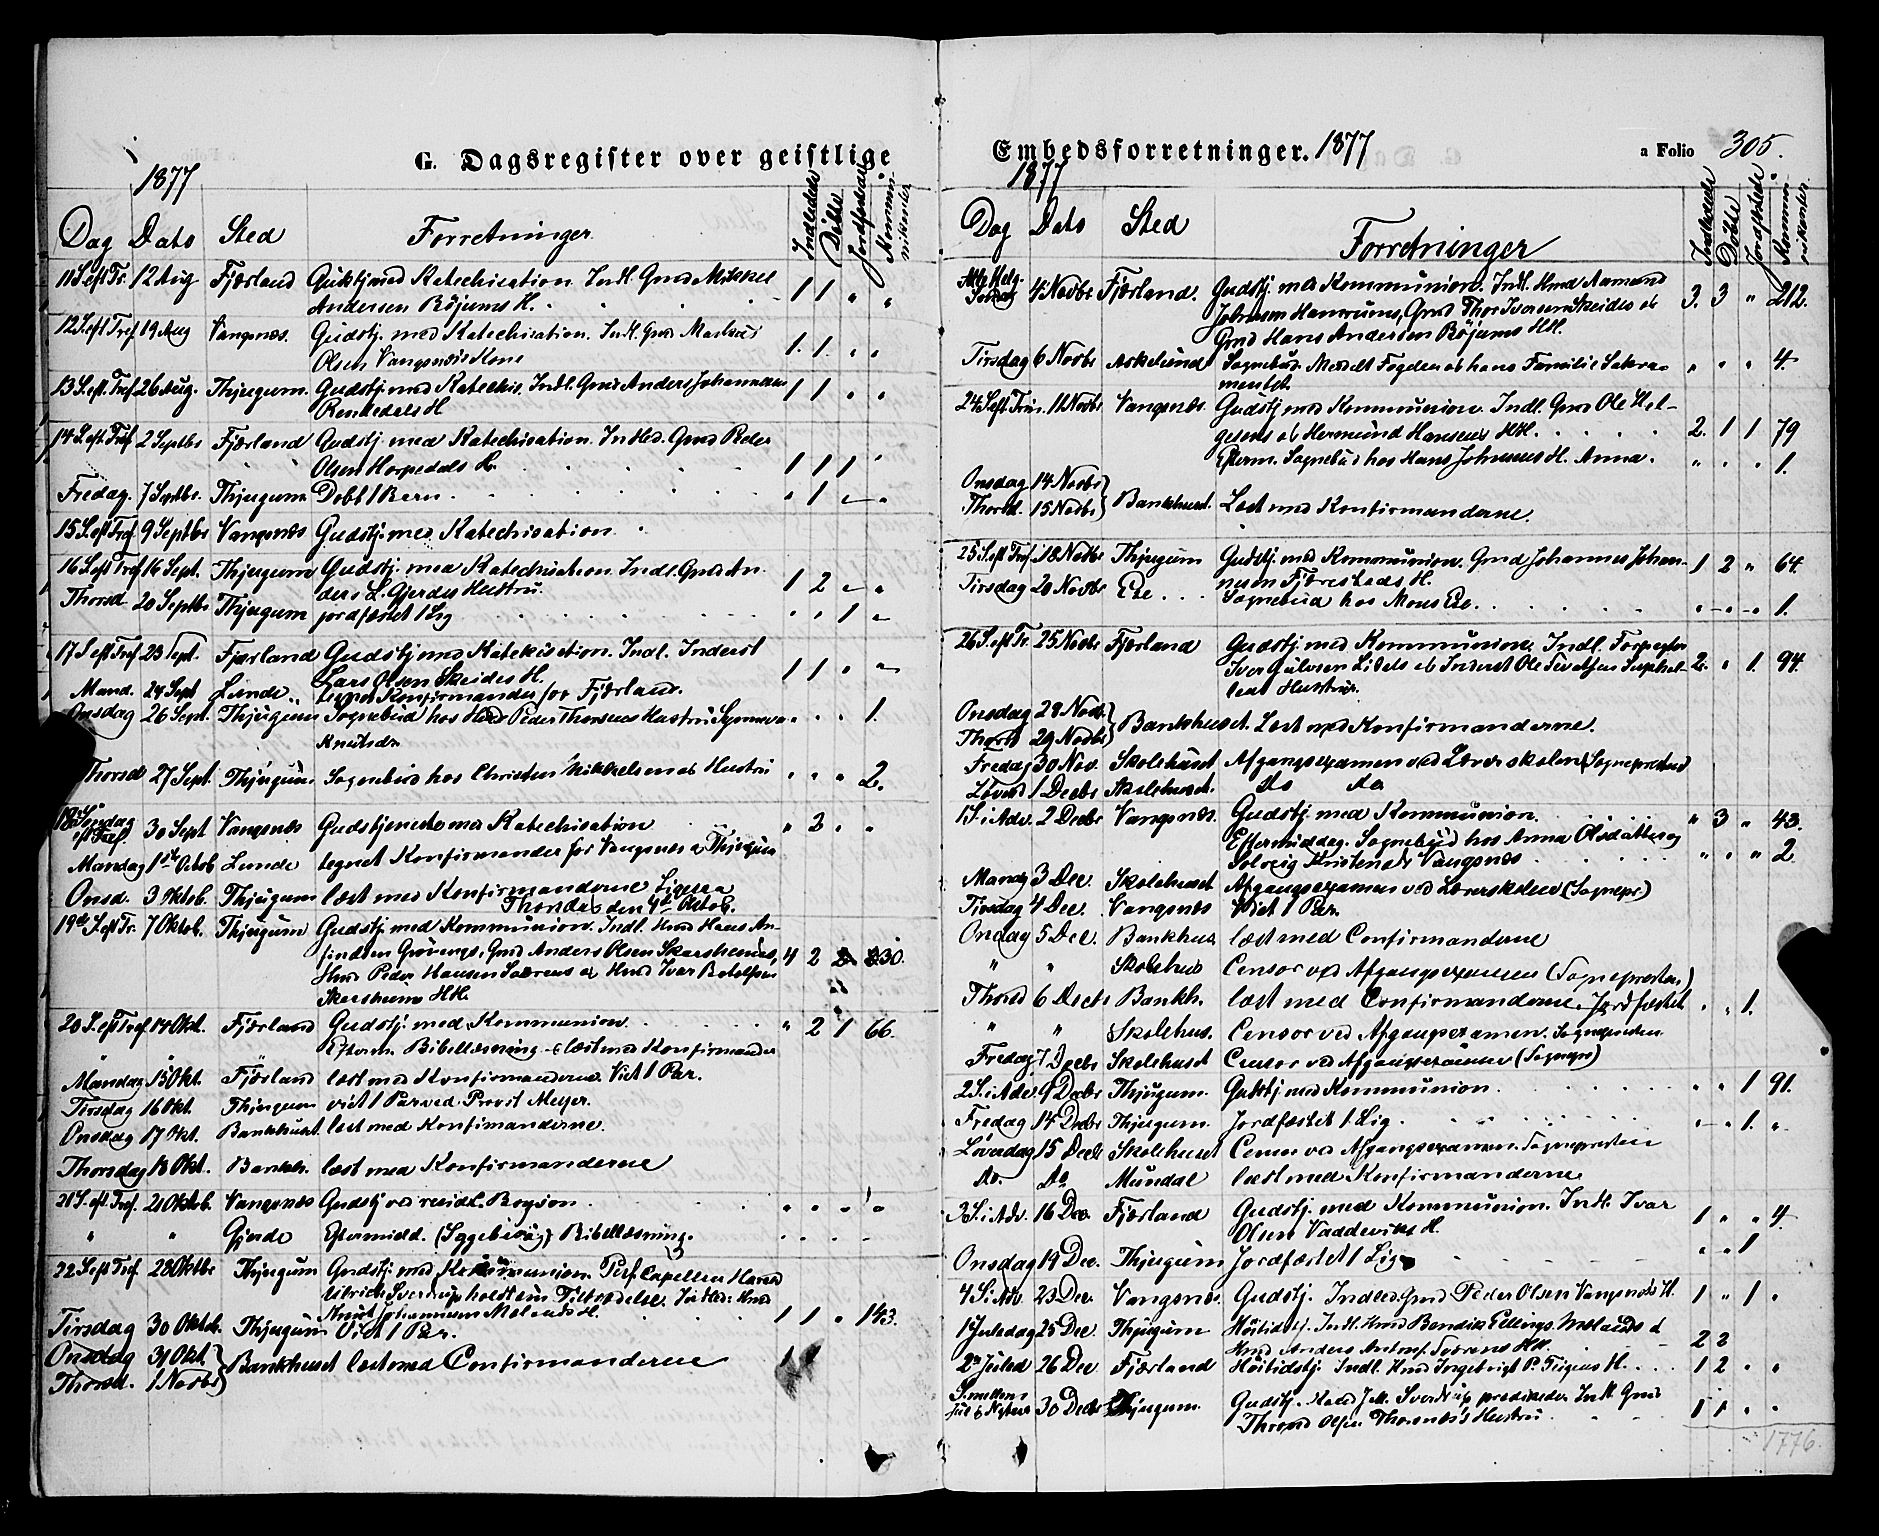 G. Dagsregister over geistlige
1877
Dag Dato Sted Forretninger Indledede Döbte Jordfæstede Kommunikanter
11 S eft Tr. 12 Aug Fjærland Gudstj med Katechisation. Indl. Gmd Mikkel
Andersen Böjums H. 1 1 " "
12 S eft Tref 19 Aug Vangsnæs. Gudstj. med Katechisation. Indl. Gmd
Olsen Vangsnæs Kone 1. 1. " "
13 S eft. Tref 26 Aug. Thjugum. Gudstj med Katechis. Indl. Gmd Anders Johannesen
H 1 1 " "
14 S eft Tref 2 Septbr Fjærland Gudstj. med Katechisation. Indled. Gmd Peder
Olsen Horpedals H. 1 1 1 "
Fredag. 7 Septbr. Thjugum Döbt 1 Barn " 1 " "
15 S eft Tref 9 Septbr Vangsnæs Gudstj. med Katechisation
16 S eft Tref 16 Sept. Thjugum Gudstj. med Katechisation. Indl. Gmd An-
ders L. Gjerdes Hustru. 1 2 " "
Thorsd 20 Septbr Thjugum jordfæstet 1 Lig " " 1 "
17 S eft Tref 23 Sept. Fjærland Gudstj med Katekisation. Indl. Inderst
Lars Olsen Skeides H. 1 1 " "
Mand. 24 Sept Lunde. Konfirmander for Fjærland.
Onsdag 26 Sept. Thjugum Sognebud hos Peder Thorsens Hustru Synneva " " " 1.
Knutsdr
Thorsd 27 Sept. Thjugum Sognebud hos Christen Mikkelsen og Hustru " " " 2.
18 Söndag
eft Tref. 30 Sept Vangsnæs Gudstjeneste med Katechisation " 2 " "
Mandag 1ste Octob Lunde tegnet Konfirmander for Vangsnæs og Thjugum
Onsd. 3 Oktob. Thjugum læst med Konfirmanderne Ligesaa
Thorsdag den 4de Oktob.
19de S eft Tr. 7 Oktob. Thjugum Gudstj. med Kommunion. Indl. Hmd Hans An-
Gmd Anders Olsen
Hmd Peder Hansen og Hmd Ivar
H H. 4 2 230.
20 S. eft Tref. 14 Okt. Fjærland Gudstj. med Kommunion " 2 1 66.
Efterm. Bibellæsning læst med Konfirmander
Mandag 15 Okt. Fjärland læst med Konfirmanderne. Viet 1 Par.
Tirsdag 16 Okt. Thjugum viet 1 Par ved. Provst Meyer.
Onsdag 17 Okt. Bankhuset læst med Konfirmanderne.
Thorsdag 18 Okt. Bankh. læst med Konfirmanderne
21 S. eft. Tref. 21 Oktob. Vangsnæs Gudstj ved resid. " " " "
" " Gjerde Eftermidd. Bibellæsning. " " " "
22 S eft Tref 28 Oktbr Thjugum Gudstj. med Kommunion. Pers Capellan
Sverdrup holdt sin Tiltrædelse. Indled: Hmd
Knut Johannesen H. 1 1 " 143.
Tirsdag 30 Oktob. Thjugum Viet 1 Par.
Onsdag 31 Okt. } Bankhuset læst med Confirmanderne
Thorsd. 1 Novbr
Embedsforretninger. 1877 a Folio 305.
1877
Dag Dato Sted Forretninger Indledede Döbte Jordfæstede Kommunikanter
Alle Helg.
Söndag 4 Novbr Fjærland. Gudstj. med Kommunion. Indl. Hmd Aamund
Johnsen Hamrums, Gmd Thor Iversen Skeides og
Gmd Hans Andersen Böjums HH. 3. 3 " 212.
Tirsdag 6 Novbr Askelund Sognebud. Meddelt Fogden og hans Familie Sakra-
mentet " " " 4.
24 S eft Trin. 11 Novbr Vangsnæs. Gudstj med Kommunion. Indl. Gmd Ole Hel-
gesens og Hermund Hansens HH. 2. 1 1 79
Efterm. Sognebud hos Hans Johnsens H. Anna. " " " 1.
Onsdag 14 Novbr
Thorsd. 15 Novbr } Bankhuset. Læst med Konfirmanderne.
25 S. eft Tref. 18 Novbr Thjugum Gudstj med Kommunion. Gmd Johannes Johan-
nesen H. 1 2 " 64.
Tirsdag 20 Novbr Ese Sognebud hos Mons Ese. " " " 1.
26 S eft Tr. 25 Novbr Fjærland Gudstj med Kommunion. Indl. Forpagter
Iver og Inderst Ole
Hustru. 2. " 1. 94.
Onsdag 28 Novb.
Thorsd 29 Novbr } Bankhuset. Læst med Konfirmanderne.
Fredag 30 Nov. Skolehuset Afgangsexamen ved Lærerskolen (Sognepresten)
Löverd 1 Decbr Skolehuset. do do
1 S. i Adv. 2 Decbr Vangsnæs. Gudstj. med Kommunion " 3 " 43.
Eftermiddag. Sognebud hos Anna Olsdatter og
Solveig Kristensdr Vangsnæs " " " 2
Mandag 3 Dec. Skolehuset Afgangsexamen ved Lærerskolen (Sognepr)
Tirsdag 4 Dec. Vangsnæs Viet 1 Par.
Onsdag 5 Dec. Bankhus læst med Confirmanderne
" " Skolehus Censor ved Afgangsexamen (Sognepresten)
Thorsd 6 Decbr Bankh. læst med Confirmanderne. Jordfæstet " " 1.
" " Skolehus. Censor ved Afgangsexamen. Sognepresten
Fredag 7 Decbr Skolehuset Censor ved Afgangsexamen (Sognepr)
2 S. i Adv. 9 Decbr Thjugum. Gudstj med Kommunion " " 1 91.
Fredag 14 Decbr Thjugum. Jordfæstet 1 Lig " " 1. "
Löverdag 15 Decbr Skolehuset Censor ved Afgangsexamen. Sognepresten
do. do Mundal læst med Konfirmanderne
3 S. i Adv. 16 Dec. Fjærland Gudstj. med Kommunion. Indl. Ivar
Olsen H. 1 " " 4.
Onsdag 19 Dec. Thjugum Jordfæstet 1 Lig " " 1
4 S i Adv. 23 Dec. Vangsnæs. Gudstj. Indled. Gmd Peder Olsen Vangsnæs H. 1 " 1 "
1 Juledag 25 Dec. Thjugum Höitidstj. Indl. Hmd Bendik Ellings. Melands &
Hmd Anders HH. 2 2
2. Juled 26 Dec Fjærland Höitidstj. Indl. Hmd Ingebrigt P. H. 1 2 " "
S. mellem
Jul & Nytaar 30 Decbr Thjugum. Gudstj. Sverdrup predikede. Indl. Gmd
Thrond Olsen Thornæs's Hustru 1 1 " "
1776.